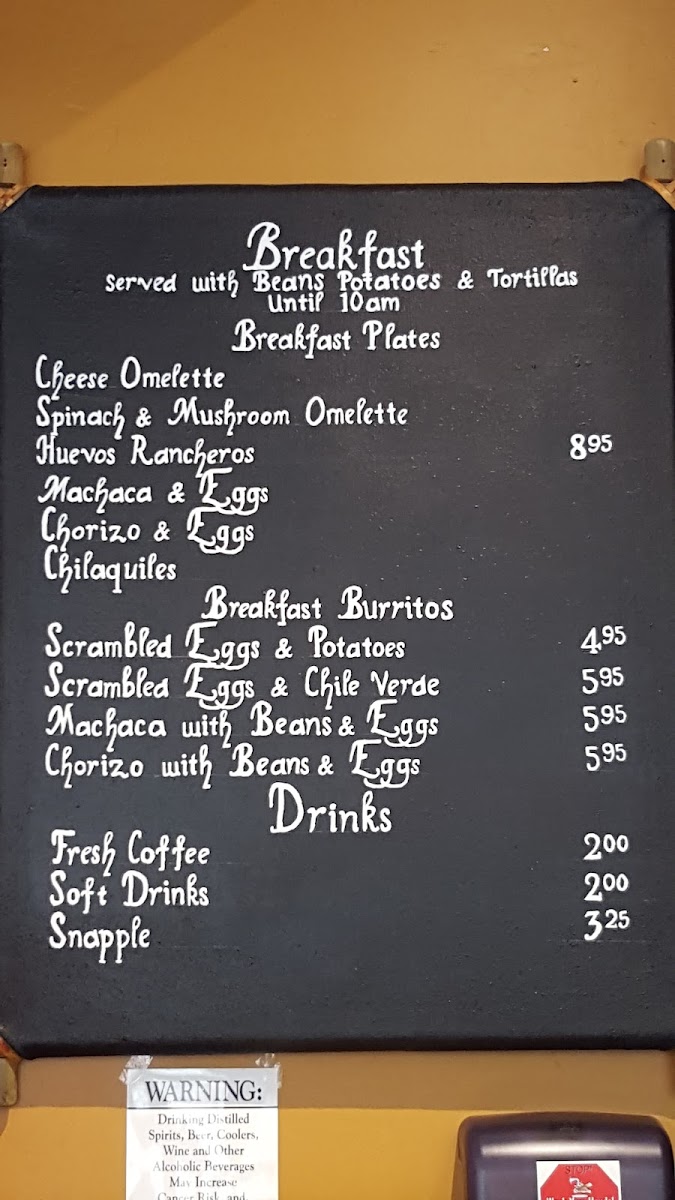 Breakfast
Served with Beans Potatoes & Tortillas
Until 10am
Breakfast Plates
Cheese Omelette
Spinach & Mushroom Omelette
Huevos Rancheros 8 95
Machaca & Eggs
Chorizo & Eggs
Chilaquiles
Breakfast Burritos
Scrambled Eggs & Potatoes 4 95
Scrambled Eggs & Chile Verde 5 95
Machaca with Beans & Eggs 5 95
Chorizo with Beans & Eggs 5 95
Drinks
Fresh Coffee 2 00
Soft Drinks 2 00
Snapple 3 25
WARNING:
Drinking Distilled
Spirits, Beer, Coolers,
Wine and Other
Alcoholic Beverages
May Increase
Cancer Risk, and,
STOP!